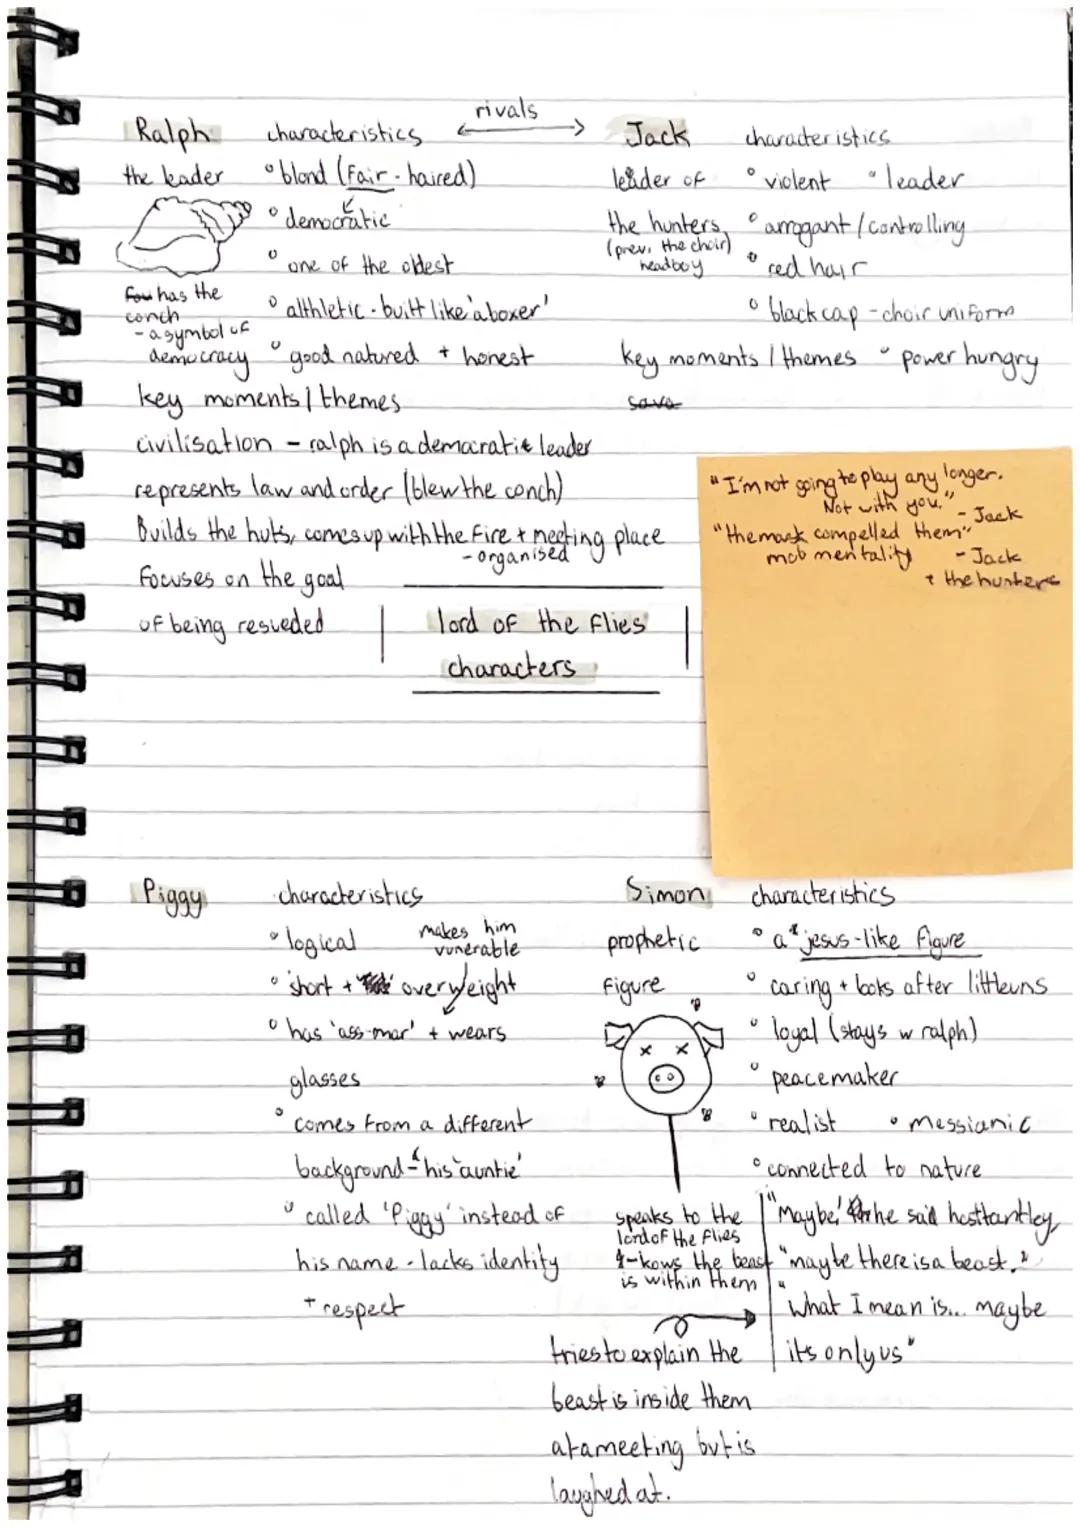 rivals
Ralph characteristics
the leader
° blond (fair-haired)
° democratic
° one of the oldest
° althletic - built like 'a boxer'
° good natured + honest
has the
conch
- a symbol of
democracy
key moments / themes
civilisation - ralph is a democratic leader
represents law and order (blew the conch)
Builds the huts, comes up with the fire + meeting place
- organised
focuses on the goal
of being rescueded
Jack characteristics
leader of
the hunters
(prev. the choir)
headboy
° violent ° leader
° arrogant / controlling
° red hair
° black cap - choir uniform
key moments / themes ° power hungry
sava
"I'm not going to play any longer.
Not with you." - Jack
"the mask compelled them"
mob mentality - Jack
+ the hunters
lord of the flies
characters
Piggy characteristics
° logical
makes him
vunerable
° short + overweight
° has 'ass-mar' + wears
glasses
° comes from a different
background - 'his auntie'
° called 'Piggy' instead of
his name - lacks identity
+ respect
Simon characteristics
prophetic
figure
° a jesus-like figure
° caring + looks after littleuns
° loyal (stays w ralph)
° peacemaker
° realist ° messianic
° connected to nature
speaks to the
lord of the flies
- kows the beast
is within them
"Maybe,' he said hesitantley,
"maybe there is a beast."
"What I mean is... maybe
its only us"
tries to explain the
beast is inside them
at a meeting but is
laughed at.